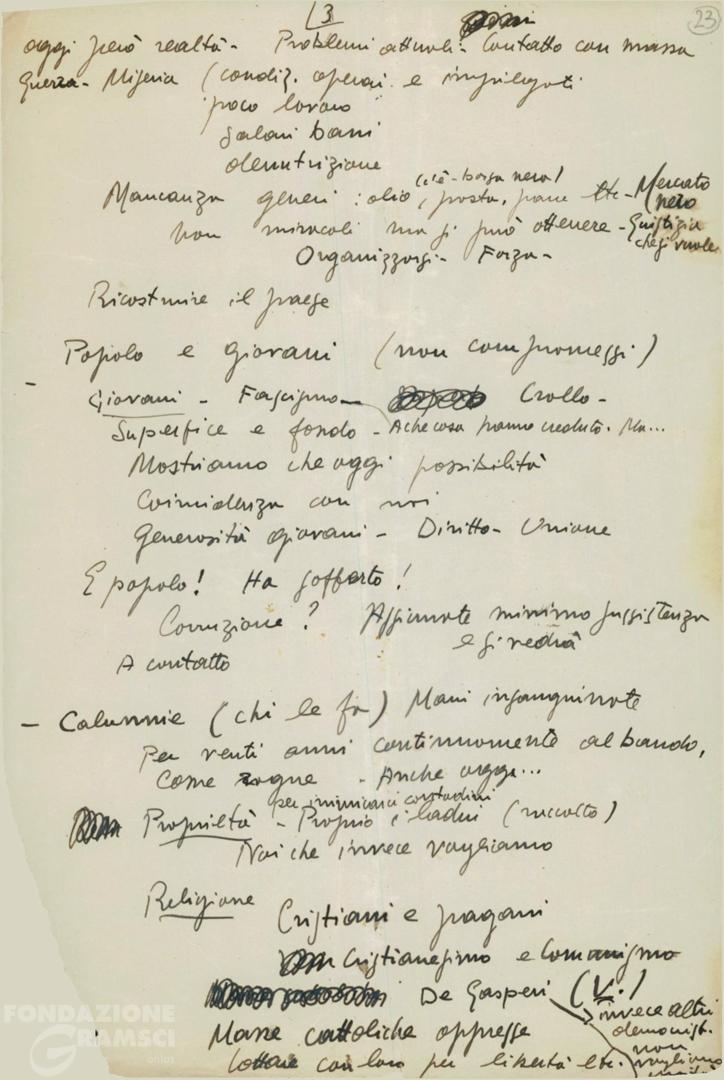 13
23
oggi però realtà - Problemi attuali - Contatto con massa
Guerra - Miseria (condiz. operai e impiegati
poco lavoro
salari bassi
denutrizione
Mancanza generi : olio (c'è - borsa nera), pasta, pane etc - Mercato nero
non miracoli ma si può ottenere - Giustizia che si vuole
Organizzarsi - Forza -
Ricostruire il paese
Popolo e giovani (non compromessi)
- Giovani - Fascismo - Crollo -
Superfice e fondo - A che cosa hanno creduto. Ma...
Mostriamo che oggi possibilità
Coincidenza con noi
Generosità giovani - Diritto - Unione
E popolo! Ha sofferto!
Corruzione? Assicurate minimo sussistenza
e si vedrà
A contatto
- Calunnie (chi le fa) Mani insanguinate
Per venti anni continuamente al bando,
Come rogne - Anche oggi...
per inimicarci contadini
Proprietà - Proprio i ladri (raccolto)
Noi che invece vogliamo
Religione
Cristiani e pagani
Cristianesimo e Comunismo
De Gasperi (V.)
invece altri
democrist.
non
vogliamo
Masse cattoliche oppresse
Lottare con loro per libertà etc.
FONDAZIONE
GRAMSCI
onlus